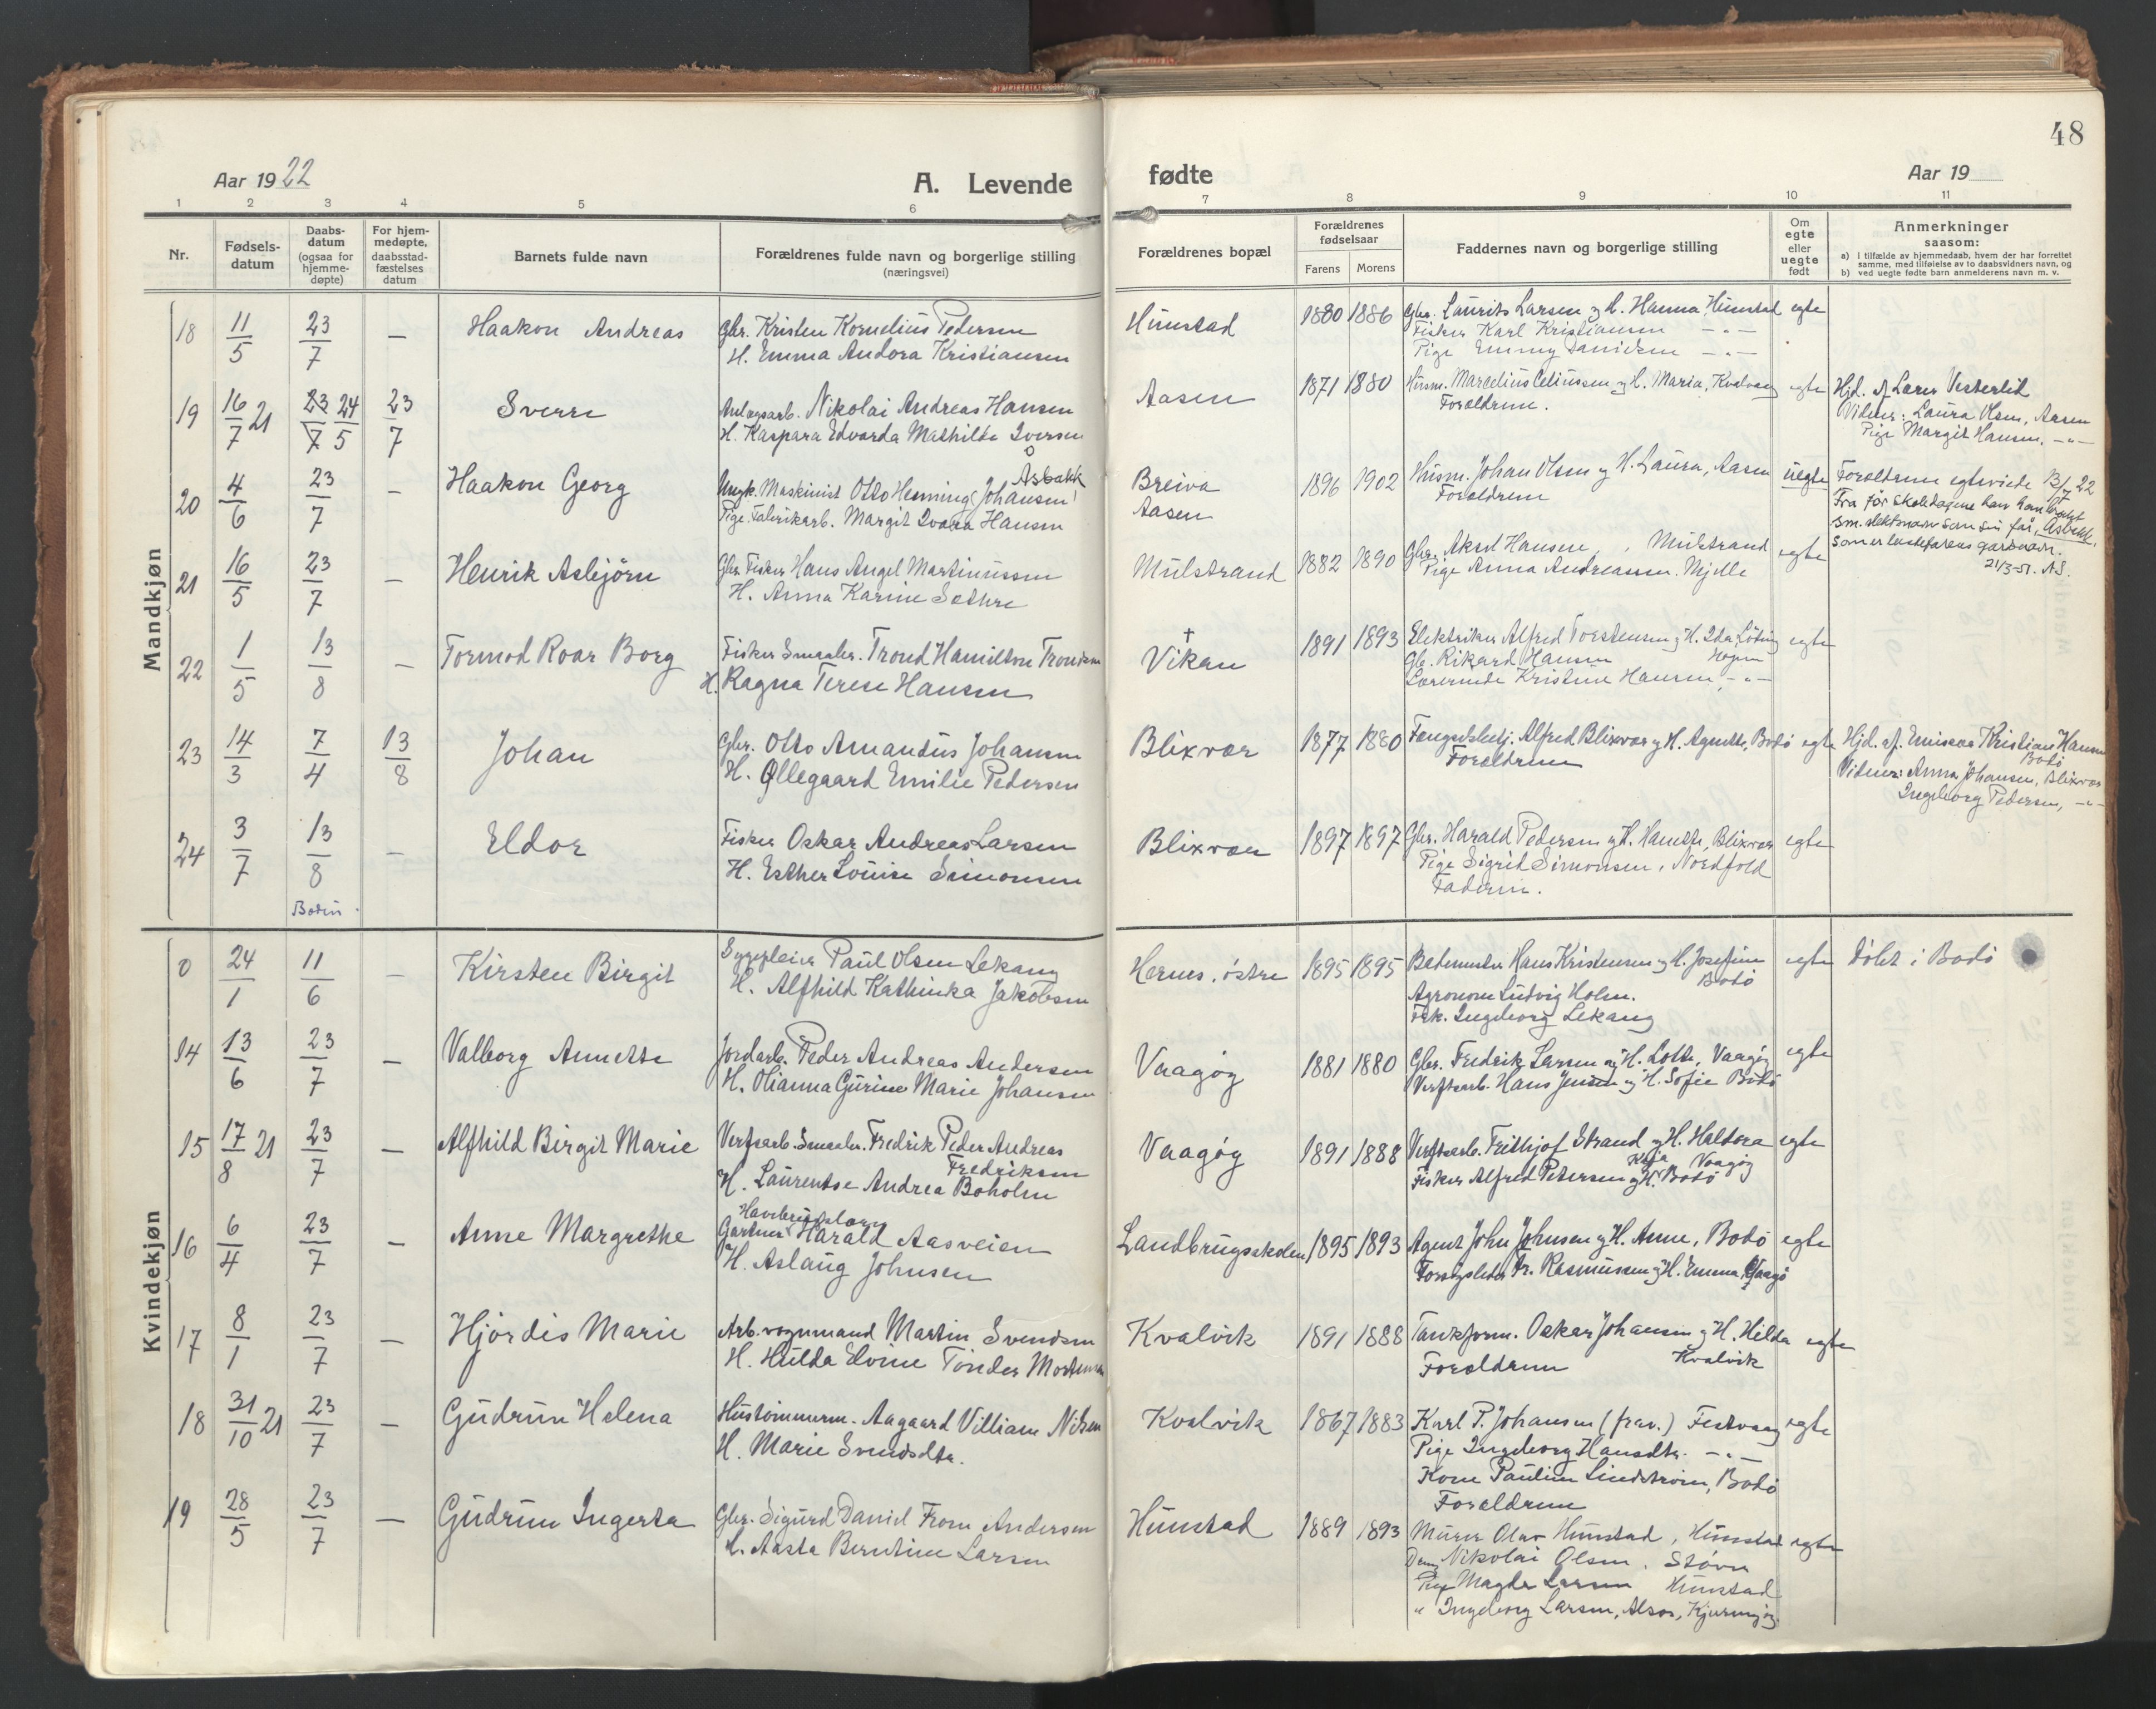 48
Aar 1922
A. Levende
fødte
Aar 19
1 2 3 4 5 6 7 8 9 10 11
Nr.
Fødsels-
datum
Daabs-
datum
(ogsaa for
hjemme-
døpte)
For hjem-
medøpte,
daabsstad-
fæstelses
datum
Barnets fulde navn
Forældrenes fulde navn og borgerlige stilling
(næringsvei)
Forældrenes bopæl
Forældrenes
fødselsaar
Farens Morens
Faddernes navn og borgerlige stilling
Om
egte
eller
uegte
født
Anmerkninger
saasom:
a) i tilfælde av hjemmedaab, hvem der har forrettet
samme, med tilføielse av to daabsvidners navn, og
b) ved uegte fødte barn anmelderens navn m. v.
Mandkjøn
18 11/5 23/7 — Haakon Andreas
Gbr. Kristen Kornelius Pedersen
H. Emma Andora Kristiansen
Hunstad 1880 1886
Gbr. Laurits Larsen og H. Hanna, Hunstad
Fisker Karl Kristiansen —"—
Pige Emmy Danielsen —"—
egte
19 16/7 21 23/7 24/5 23/7 Sverre
Anlægsarb. Nikolai Andreas Hansen
H. Kaspara Edvarda Mathilde Iversen
Aasen 1871 1880
Husm. Marcelius Celiussen og H. Maria, Kvalvaag
Forældrene.
egte
Hjd. af Lærer Vesterlid
Vidner: Laura Olsen, Aasen
Pige Margit Hansen, —"—
20 4/6 23/7 — Haakon Georg
Åsbakk
Ungk. Maskinist Otto Henning Johansen
Pige. Fabrikarb. Margit Ivara Hansen
Breiva
Aasen
1896 1902
Husm. Johan Olsen og H. Laura, Aasen
Forældrene
uegte
Forældrene egteviede 13/7 22
Fra før skoledagene har han brukt
sm. slektsnavn som sin far, Åsbakk,
som er bestefarens gårdsnavn.
21/3-51. AS.
21 16/5 23/7 — Henrik Asbjörn
Gbr. Fisker Hans Angel Martinussen
H. Anna Karine Sæthre
Mulstrand 1882 1890
Gbr. Aksel Hansen, Mulstrand
Pige Anna Andreassen. Mjelle
egte
22 1/5 13/8 — Tormod Roar Borg
Fisker Smaabr. Trond Hamilton Trondsen
H. Ragna Terese Hansen
†
Vikan 1891 1893
Elektriker Alfred Torstensen og H. Ida, Löding
Gb. Rikard Hansen Hopen
Lærerinde Kristine Hansen, —"—
egte
23 14/3 7/4 13/8 Johan
Gbr. Otto Amandus Johansen
H. Øllegaard Emilie Pedersen
Blixvær 1877 1880
Fængselsbetj. Alfred Blixvær og H. Agnette, Bodö
Forældrene
egte
Hjd. af. Emissær Kristian Hansen
Bodö
Vidner: Anna Johansen, Blixvær
Ingeborg Pedersen, —"—
24 3/7 13/8 — Eldor
Bodin
Fisker Oskar Andreas Larsen
H. Esther Louise Simonsen
Blixvær 1897 1897
Gbr. Harald Pedersen og H. Hanette, Blixvær
Pige Sigrid Simonsen, Nordfold
Faderen.
egte
Kvindekjøn
0 24/1 11/6 — Kirsten Birgit
Sygepleier Paul Olsen Lekang
H. Alfhild Kathinka Jakobsen
Hernes, østre 1895 1895
Bademester Hans Kristensen og H. Josefine
Bodö
Agronom Ludvig Holm.
Frk. Ingeborg Lekang
egte
Döbt i Bodö
14 13/6 23/7 — Valborg Annette
Jordarb. Peder Andreas Andersen
H. Olianna Gurine Marie Johansen
Vaagöy 1881 1880
Gbr. Fredrik Larsen og H. Lotte, Vaagöy
Verftsarb. Hans Jensen og H. Sofie Bodö
egte
15 17/8 21 23/7 — Alfhild Birgit Marie
Verftsarb. Smaabr. Fredrik Peder Andreas
Fredriksen
H. Laurentse Andrea Boholm
Vaagöy 1891 1888
Verftsarb. Frithjof Strand og H. Haldora
Kaja Vaagöy
Fisker Alfred Petersen og H. Bodö
egte
16 6/4 23/7 — Anne Margrethe
Gartner Harald Aasveien
H. Aslaug Johnsen
Landbrugsskolen 1895 1893
Agent John Johnsen og H. Anne, Bodö
Forsögsleder Fr. Rasmussen og H. Emma, Vaagö
egte
17 8/1 23/7 — Hjördis Marie
Arb. vognmand Martin Svendsen
H. Hulda Elvine Tönder Mortensen
Kvalvik 1891 1888
Tankform. Oskar Johansen og H. Hilda
Forældrene Kvalvik
egte
18 31/10 21 23/7 — Gudrun Helena
Hustömmerm. Aagaard Villiam Nilsen
H. Marie Svendsdtr.
Kvalvik 1867 1883
Karl P. Johansen (frav.) Festvaag
Pige Ingeborg Hansdtr. —"—
Kone Pauline Lindström, Bodö
Forældrene
egte
19 28/5 23/7 — Gudrun Ingerta
Gbr. Sigurd Daniel From Andersen
H. Aasta Berntine Larsen
Hunstad 1889 1893
Murer Olav Hunstad, Hunstad
Nikolai Olsen. Stövre
Pige Magda Larsen Hunstad
" Ingeborg Larsen, Alsos, Kjerringöy.
egte